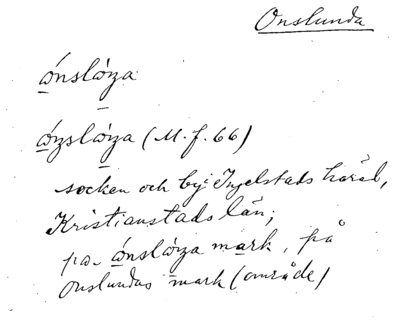 Onslunda
ónslóza
ózslóza (M.f. 66)
socken och by i Ingelstads härad,
Kristianstads län;
pa ónslóza mark, på
Onslundas mark (område)